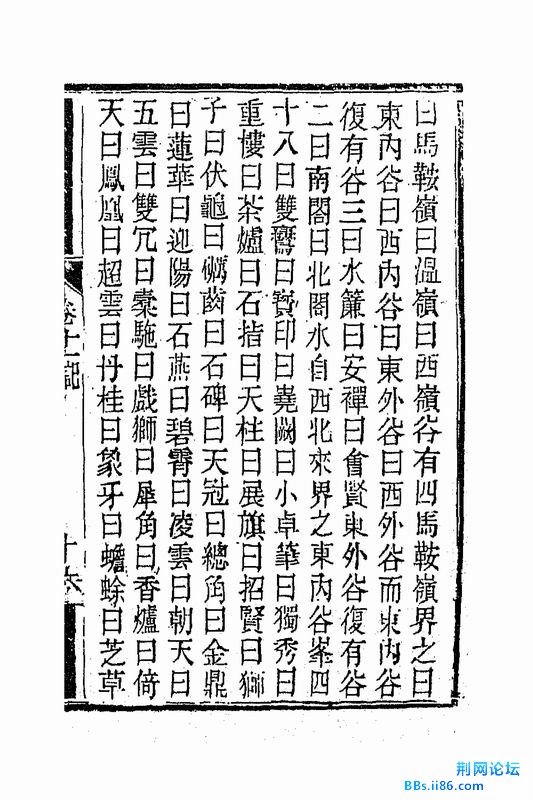 曰馬鞍嶺曰溫嶺曰西嶺谷有四馬鞍嶺界之曰
東內谷曰西內谷曰東外谷曰西外谷而東內谷
復有谷三曰水簾曰安禪曰會賢東外谷復有谷
二曰南閣曰北閣水自西北來界之東內谷峯四
十八曰雙鸞曰寶印曰堯闕曰小卓筆曰獨秀曰
重樓曰茶爐曰石指曰天柱曰展旗曰招賢曰獅
子曰伏龜曰齒曰石碑曰天冠曰總角曰金鼎
曰蓮華曰迎陽曰石燕曰碧霄曰凌雲曰朝天曰
五雲曰雙冗曰橐駞曰戲獅曰犀角曰香爐曰倚
天曰鳳凰曰超雲曰丹桂曰象牙曰蟾蜍曰芝草
卷十一記
十六
荆网论坛
BBs.ii86.com